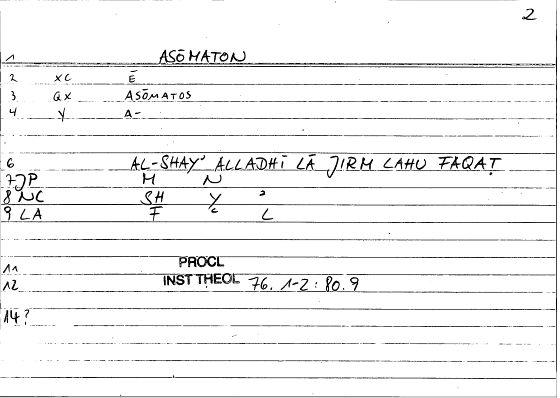 2
1 ASŌMATON
2 XC Ē
3 QX ASŌMATOS
4 Y A-
6 AL-SHAY' ALLADHĪ LĀ JIRM LAHU FAQAṬ
7 JP M N
8 NC SH Y ʾ
9 LA F ʿ L
11 PROCL
12 INST THEOL 76. 1-2 : 80.9
14?